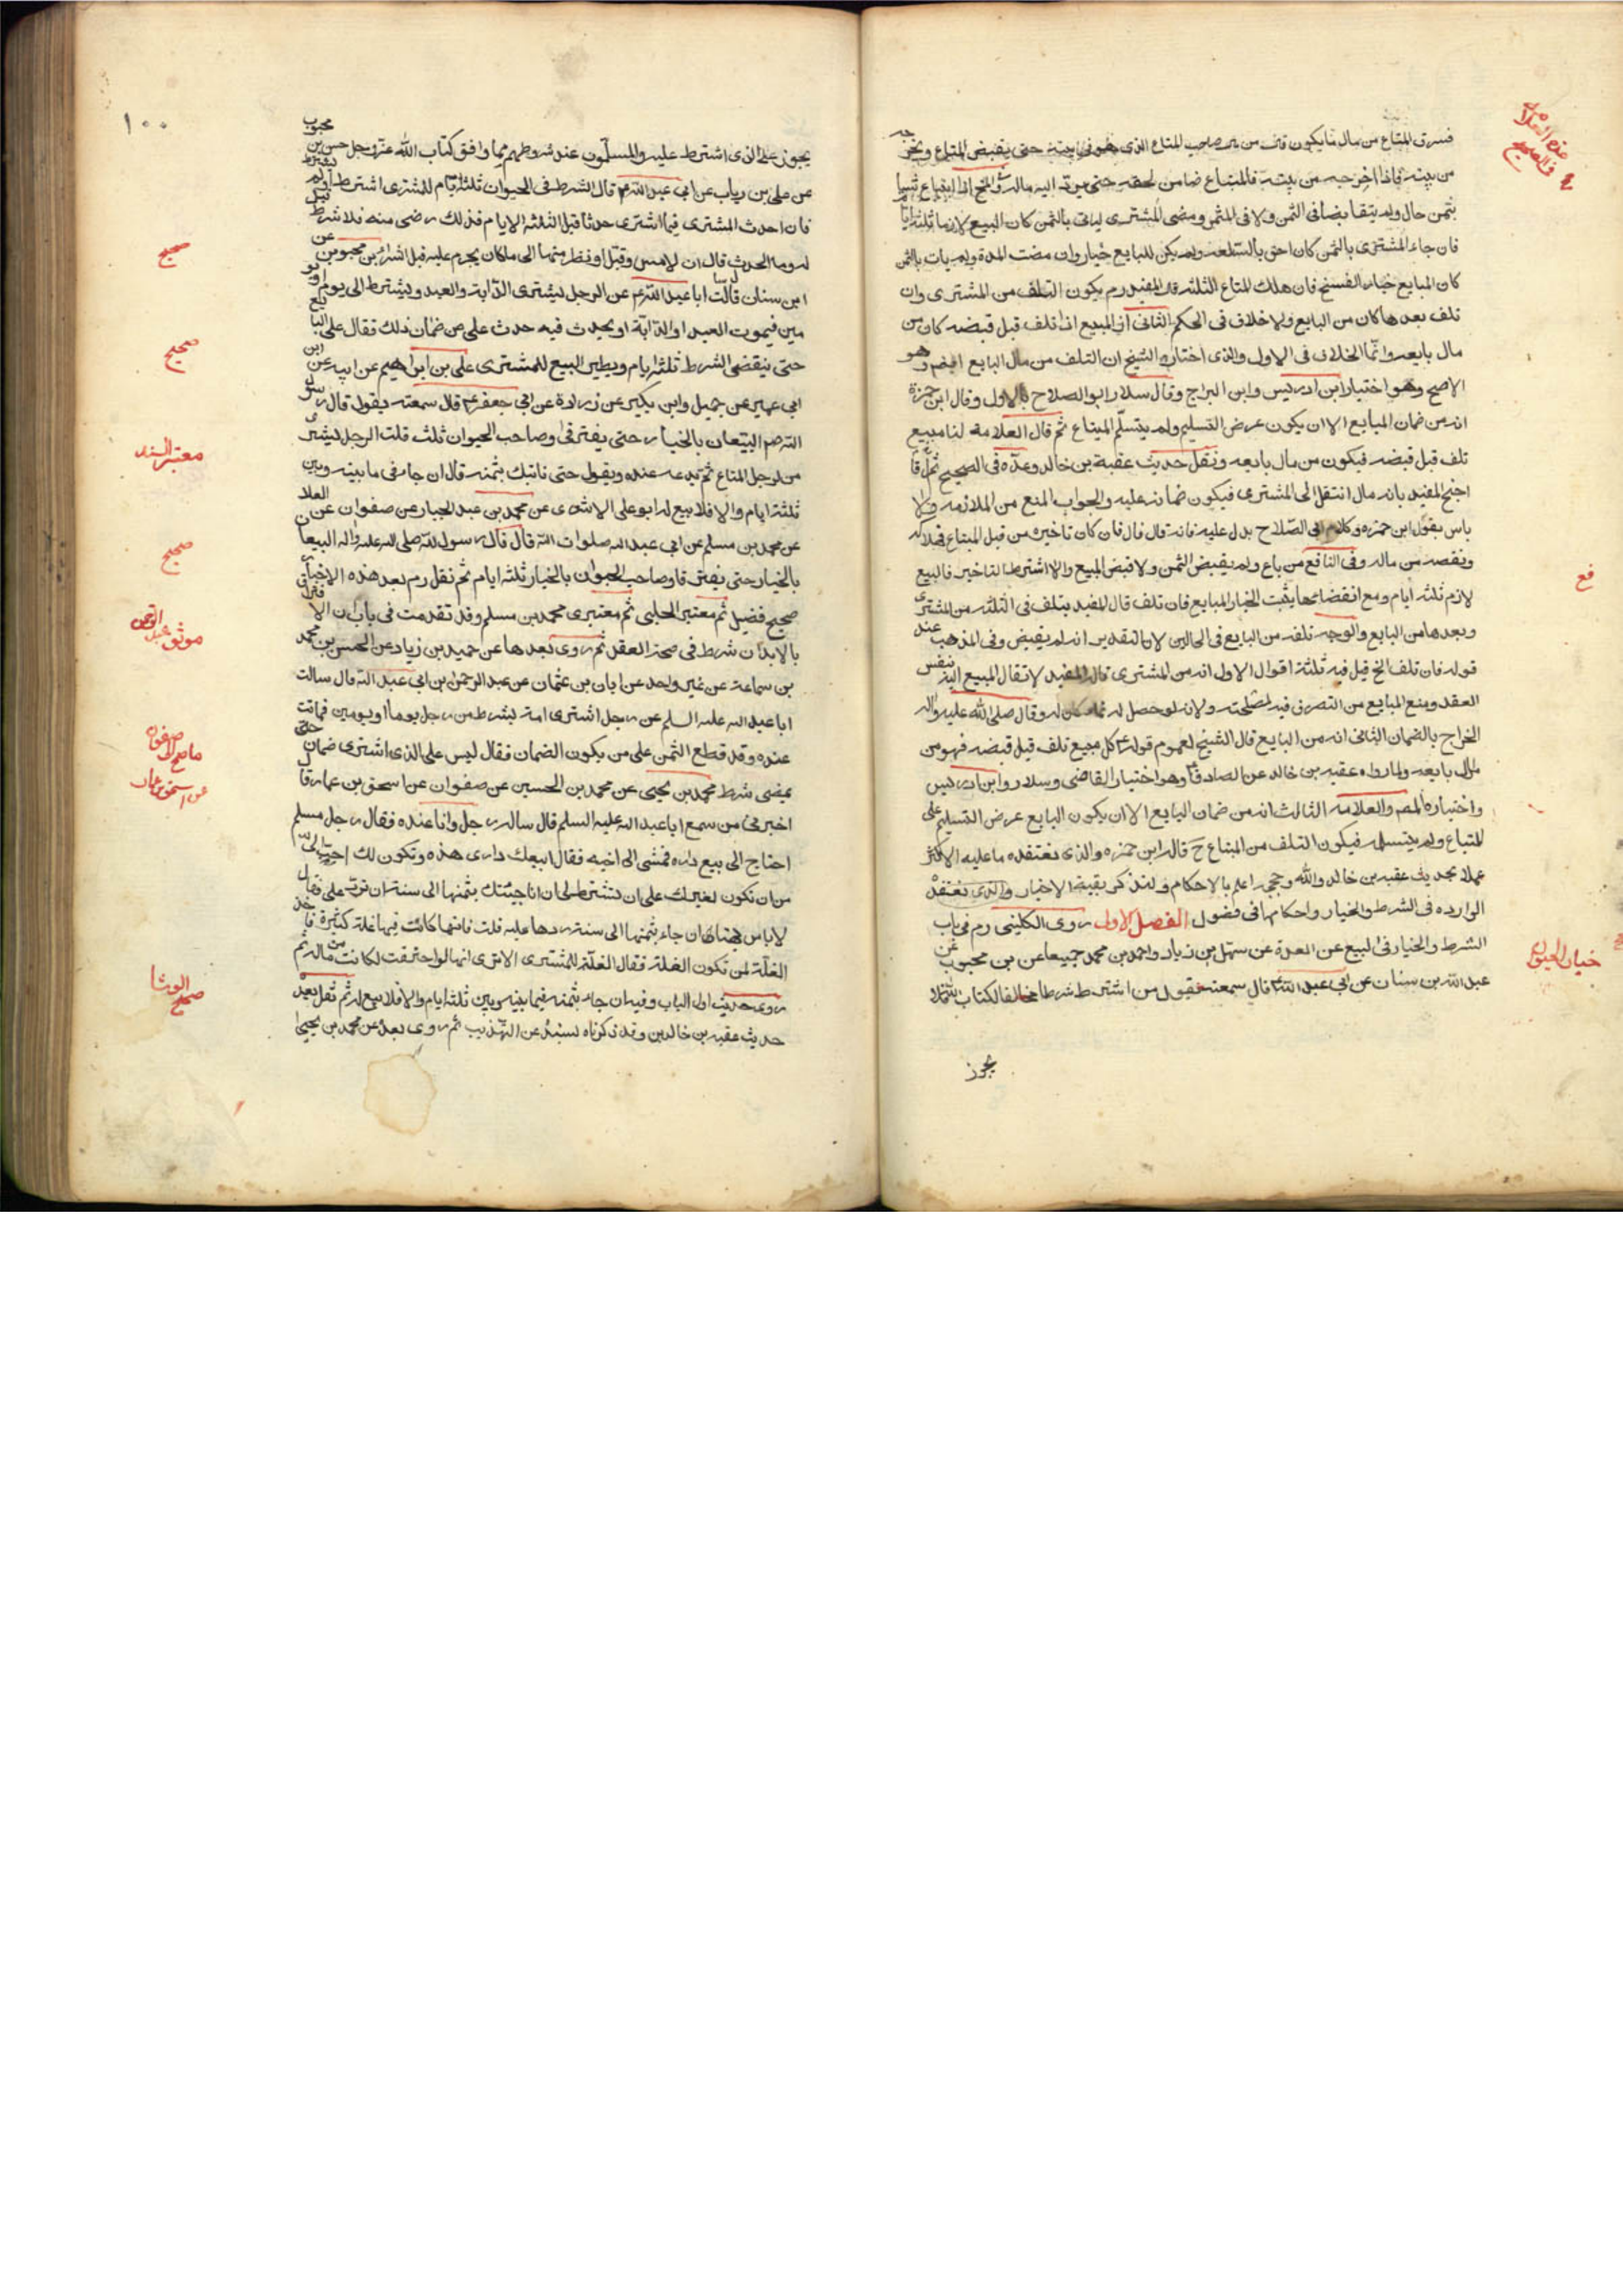 فسرق المتاع من مال من يكون قال من مال صاحب المتاع الذي هو في بيته حتى يقبض المتاع ويخرجه
من بيته فاذا اخرجه من بيته فالمبتاع ضامن لحقه حتى يرد اليه ماله
بثمن حال ولم يتقابضا في الثمن ولا في المثمن ومضى المشتري لياتي بالثمن كان البيع لازما ثلثة ايام
فان جاء المشتري بالثمن كان احق بالسلعة ولم يكن للبايع خيار وان مضت المدة ولم يات بالثمن
كان للبايع خيار الفسخ فان هلك المتاع في الثلثة قال المفيد رم يكون التلف من المشتري وان
تلف بعدها كان من البايع ولا خلاف في الحكم الثاني اذ المبيع اذا تلف قبل قبضه كان من
مال بايعه وانما الخلاف في الاول والذي اختاره الشيخ ان التلف من مال البايع ايضا وهو
الاصح وهو اختيار ابن ادريس وابن البراج وقال سلار وابو الصلاح بالاول وقال ابن حمزة
انه من ضمان البايع الا ان يكون عرض التسليم ولم يتسلم المبتاع ثم قال العلامة لنا مبيع
تلف قبل قبضه فيكون من مال بايعه ونقل حديث عقبة بن خالد وعده في الصحيح ثم قال
احتج المفيد بانه مال انتقل الى المشتري فيكون ضمانه عليه والجواب المنع من الملازمة ولا
باس بقول ابن حمزه وكلام ابي الصلاح يدل عليه فانه قال فان كان تاخيره من قبل المبتاع فهلاكه
ونقصه من ماله وفي النافع من باع ولم يقبض الثمن ولا قبض المبيع ولا اشترط التاخير فالبيع
لازم ثلثة ايام ومع انقضائها يثبت الخيار للبايع فان تلف قال المفيد يتلف في الثلثة من المشتري
وبعدها من البايع والوجه تلفه من البايع في الحالين لان التقدير انه لم يقبض وفي المذهب عند
قوله فان تلف الخ قيل فيه ثلثة اقوال الاول انه من المشتري قاله المفيد لانتقال المبيع اليه بنفس
العقد ومنع البايع من التصرف فيه لمصلحته ولانه لو حصل له نماء كان له وقال صلى الله عليه واله
الخراج بالضمان الثاني انه من البايع قال الشيخ لعموم قوله ع كل مبيع تلف قبل قبضه فهو من
مال بايعه ولما رواه عقبه بن خالد عن الصادق ع وهو اختيار القاضي وسلار وابن ادريس
واختياره المصم والعلامه الثالث انه من ضمان البايع الا ان يكون البايع عرض التسليم على
المبتاع ولم يتسلمه فيكون التلف من المبتاع ح قاله ابن حمزه والذي نعتقده ما عليه الاكثر
عملا بحديث عقبه بن خالد والله وحججه اعلم بالاحكام ولنذكر بقية الاخبار
الوارده في الشرط والخيار واحكامها في فصول الفصل الاول روى الكليني رم في باب
الشرط والخيار في البيع عن العدة عن سهل بن زياد واحمد بن محمد جميعا عن بن محبوب عن
عبد الله بن سنان عن ابي عبد الله ع قال سمعته يقول من اشترط شرطا مخالفا لكتاب الله فلا
يجوز
في الصحيح
فع
خيار الحيوان
١٠٠
يجوز على الذي اشترط عليه والمسلمون عند شروطهم مما وافق كتاب الله عز وجل
عن علي بن رياب عن ابي عبد الله ع قال الشرط في الحيوان ثلثة ايام للمشتري اشترط او لم يشترط
فان احدث المشتري فيما اشترى حدثا قبل الثلثة الايام فذلك رضى منه فلا شرط
له وما الحدث قال ان لامس وقبل او نظر منها الى ما كان يحرم عليه قبل الشراء بن محبوب عن
ابن سنان قال سالت ابا عبد الله ع عن الرجل يشتري الدابة والعبد ويشترط الى يوم او يو
مين فيموت العبد او الدابة او يحدث فيه حدث على من ضمان ذلك فقال على البايع
حتى ينقضي الشرط ثلثة ايام ويصير المبيع للمشتري علي بن ابراهيم عن ابيه عن ابن
ابي عمير عن جميل وابن بكير عن زرارة عن ابي جعفر ع قال سمعته يقول قال رسول
الله ص البيعان بالخيار حتى يفترقا وصاحب الحيوان ثلث قلت الرجل يشتري
من الرجل المتاع ثم يدعه عنده ويقول حتى ناتيك بثمنه قال ان جاء في ما بينه وبين
ثلثة ايام والا فلا بيع له ابو علي الاشعري عن محمد بن عبد الجبار عن صفوان عن العلا
عن محمد بن مسلم عن ابي عبد الله صلوات الله قال قال رسول الله صلى الله عليه واله البيعان
بالخيار حتى يفترقا وصاحب الحيوان بالخيار ثلثة ايام ثم نقل رم بعد هذه الاخبار
صحيح فضيل ثم معتبر الحلبي ثم معتبري محمد بن مسلم وقد تقدمت في باب ان الافتراق
بالابدان شرط في صحة العقد ثم روى بعدها عن حميد بن زياد عن الحسن بن محمد
بن سماعة عن غير واحد عن ابان بن عثمان عن عبد الرحمن بن ابي عبد الله قال سالت
ابا عبد الله عليه السلم عن رجل اشترى امة بشرط من رجل يوما او يومين فماتت
عنده وقد قطع الثمن على من يكون الضمان فقال ليس على الذي اشترى ضمان حتى
يمضي شرطه محمد بن يحيى عن محمد بن الحسين عن صفوان عن اسحق بن عمار قال
اخبرني من سمع ابا عبد الله عليه السلم قال ساله رجل وانا عنده فقال رجل مسلم
احتاج الى بيع داره فمشى الى اخيه فقال ابيعك داري هذه وتكون لك احب الى
من ان تكون لغيرك على ان تشترط لي ان انا جيئتك بثمنها الى سنة ان ترد على فقال
لا باس بهذا ان جاء بثمنها الى سنة ردها عليه قلت فانها كانت فيها غلة كثيرة فاخذ
الغلة لمن تكون الغلة فقال الغلة للمشتري الا ترى انها لو احترقت لكانت من ماله ثم
روى حديث اول الباب وفيه ان جاء بثمنه فيما بينه وبين ثلثة ايام والا فلا بيع له ثم نقل بعد
حديث عقبه بن خالد وقد ذكرناه بسنده عن التهذيب ثم روى بعده عن محمد بن يحيى
صحيح
صحيح
معتبر السند
صحيح
موثق عبد الرحمن
عن اسحق بن عمار